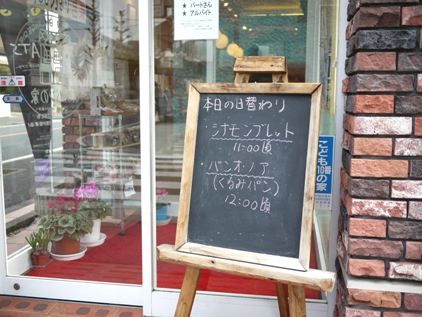 ★ パートさん
★ アルバイト
本日の日替わり
・シナモンブレット
11:00頃
・パン・オ・ノア
(くるみパン)
12:00頃
こども110番の家